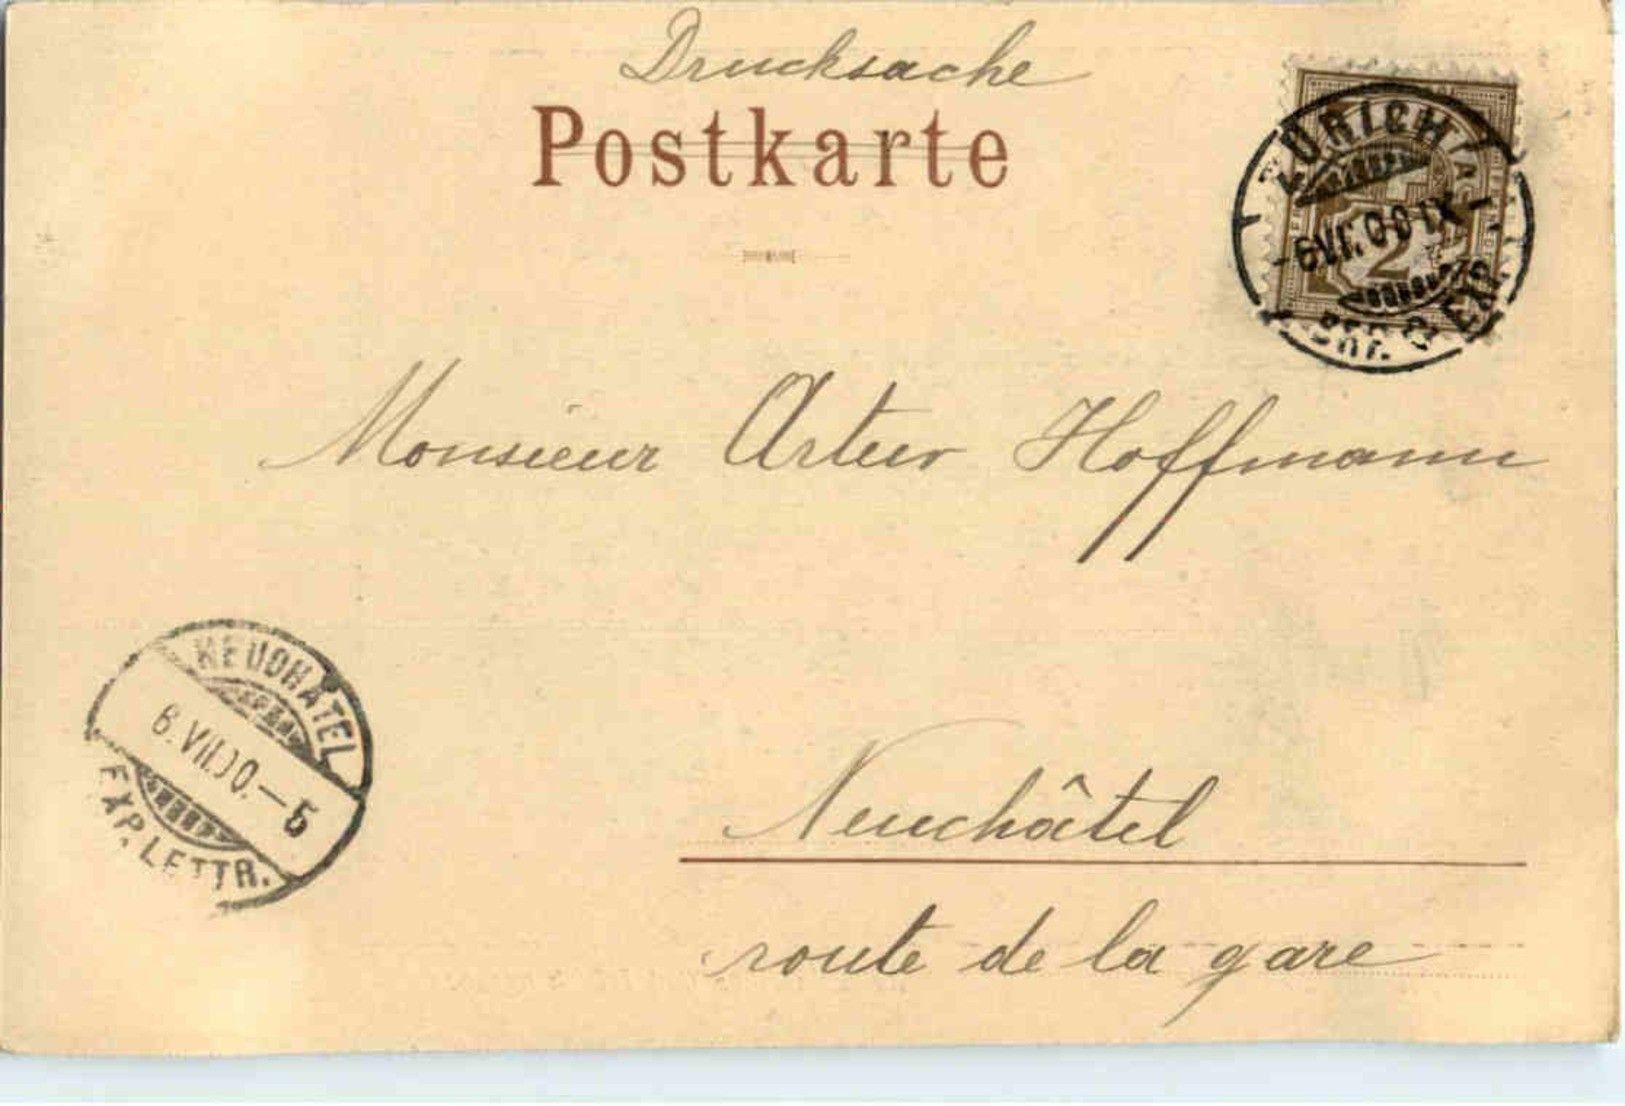 Drucksache
Postkarte
ZÜRICH
-6.VII.00.IX
2
BRF. EXP.
Monsieur Arteur Hoffmann
NEUCHÂTEL
6.VII.00.—5
EXP. LETTR.
Neuchâtel
route de la gare